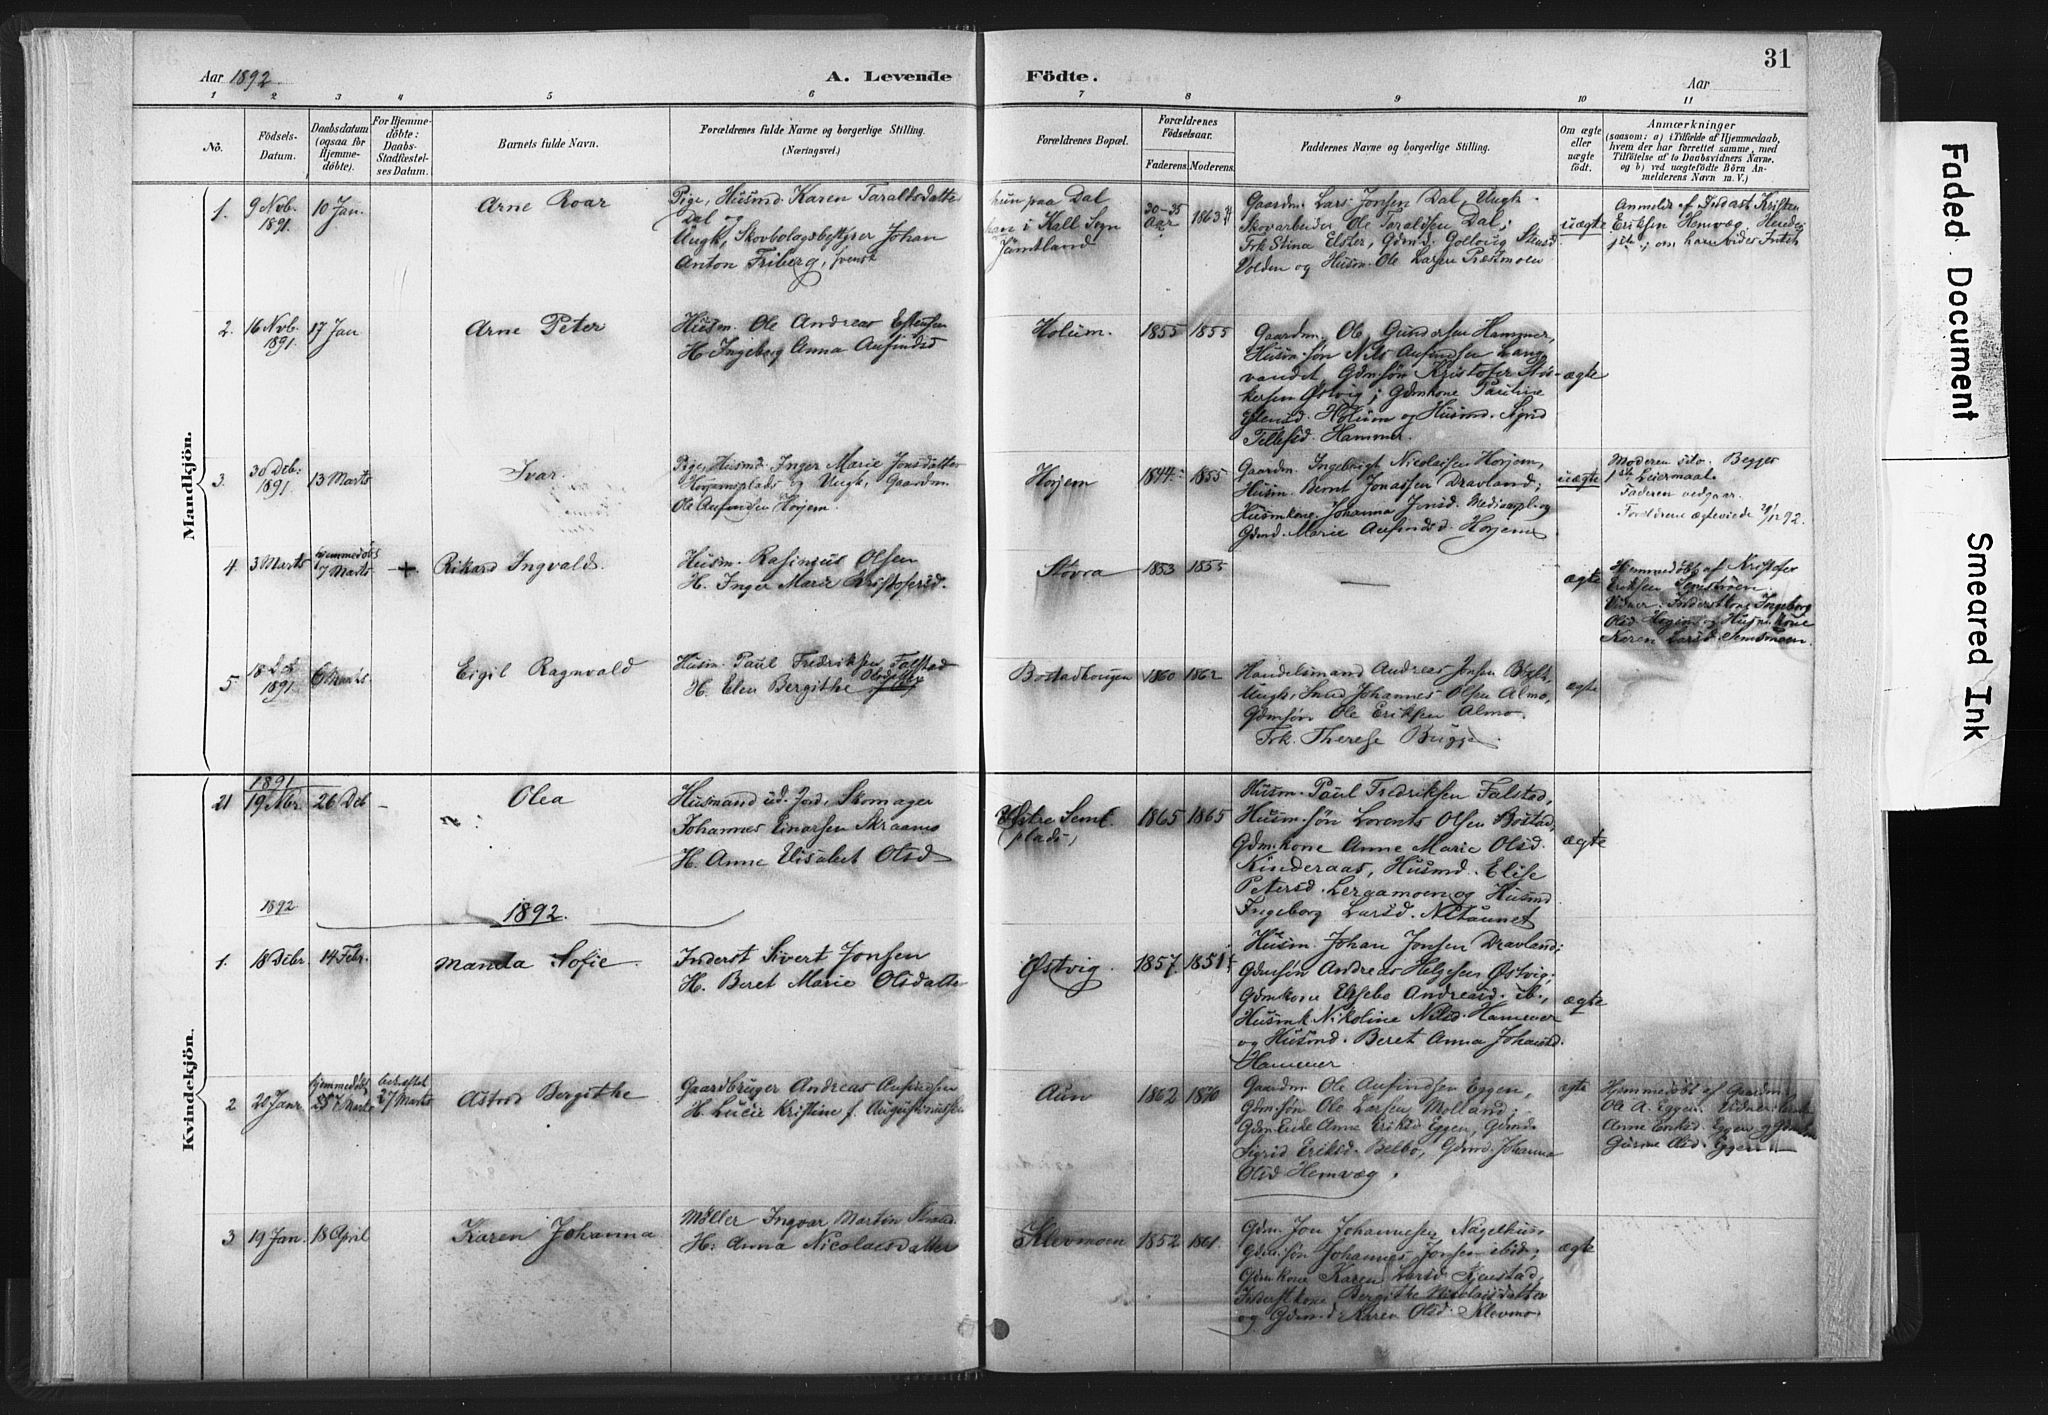 31
Aar 1892
A. Levende
Födte.
Aar
1 2 3 4 5 6 7 8 9 10 11
No.
Födsels-
Datum.
Daabsdatum
(ogsaa for
Hjemme-
döbte).
For Hjemme-
döbte:
Daabs-
Stadfæstel-
ses Datum.
Barnets fulde Navn.
Forældrenes fulde Navne og borgerlige Stilling.
(Næringsvei.)
Forældrenes Bopæl.
Forældrenes
Födselsaar.
Faderens.
Moderens.
Faddernes Navne og borgerlige Stilling.
Om ægte
eller
uægte
födt.
Anmærkninger
(saasom: a) i Tilfælde af Hjemmedaab,
hvem der har forrettet samme, med
Tilföielse af to Daabsvidners Navne,
og b) ved uægtefödte Börn An-
melderens Navn m. V.)
Mandkjön.
1. 9 Nvb. 1891. 10 Jan.
Arne Roar
Pige, Husmd. Karen Taraldsdatter
Dal og
Ungk, Skovbolagsbestyrer Johan
Anton Friberg, svensk
hun paa Dal
han i Kall Sogn
Jämtland
30-35
Aar
1863
Gaardm. Lars Jonsen Dal, Ungk.
Skovarbeider Ole Taraldsen Dal,
Frk Stina Elster, Gdmd. Gollovig
Volden og Husm. Ole Larsen Præstmoen
uægte
Anmeldt af Kristen
Eriksen Hemvæg.
2. 16 Nvb. 1891. 17 Jan
Arne Peter
Husm. Ole Andreas Estensen
H. Ingeborg Anna Aufindsd
Holum.
1855 1855
Gaardm. Ole Gundersen Hammer,
Husm. søn Nils Aufindsen Lang-
vandet, Gdmsøn Kristofer
Østvig; Gdmkone Pauline
Estensd. Holum og Husmd. Sigrid
Tillesd. Hammer.
ægte
3. 30 Deb. 1891. 13 Marts
Ivar.
Pige, Husmd. Inger Marie Jonsdatter
Horjemsplads og Ungk, Gaardm.
Ole Aufindsen Horjem.
Horjem
1844. 1855
Gaardm. Ingebrigt Nicolaisen Horjem,
Husm. Bernt Jonassen Dravland;
Husmkone Johanna Jonsd.
Gdmd. Marie Aufindsd. Horjem
uægte
Moderen
Leiermaal.
Faderen vedgaar.
Forældrene ægteviede 92.
4 3 Marts hjemmedøbt 7 Marts +
Rikard Ingvald.
Husm. Rasinius Olsen
H. Inger Marie Kristofersd.
Støvra
1853 1855
—
ægte
Hjemmedøbt af Kristofer
Eriksen Semsmoen.
Vidner: Inderstkone Ingeborg
Olsd og Husm. kone
Karen Larsd. Semsmoen.
5 18 Deb 1891. 6 Marts
Eigil Ragnvald
Husm. Paul Fredriksen Falstad
H. Elen Bergithe Olsdatter
Bostadhougen
1860 1862
Handelsmand Andreas Jensen
Ungk, Johannes Olsen Almo,
Gdmsøn Ole Eriksen Almo.
Frk. Therese Bugge.
ægte
Kvindekjön.
1891
21 19 Nbr. 26 Deb -
Olea
Husmand ud. Jord, Skomager
Johannes Einarsen Skraamo
H. Anne Elisabet Olsd
Vestre Seml.
(plads)
1865 1865
Husm. Paul Fredriksen Falstad,
Husm. søn Lorents Olsen Bostad,
Gdm. kone Anne Marie Olsd.
Kinderaas, Husmd. Elise
Petersd. Lergamoen og Husmd
Ingeborg Larsd.
ægte
1892
1892.
1. 18 Debr 14 Febr.
Manda Sofie.
Inderst Sivert Jonsen
H. Beret Marie Olsdatter
Østvig.
1857. 1851
Husm. Johan Jonsen Dravland;
Gdmsøn Andreas Helgesen Østvig;
Gdmkone Ellsebo Andreasd. ib.,
Husmk. Nikoline Nilsd. Hammer
og Husmd. Beret Anna Johansd.
Hammer
ægte
2 20 Janr hjemmedøbt Marts bekræftet 27 Marts
Astrid Bergithe
Gaardbruger Andreas Aufindsen
H. Lucie Kristine f. Augustinussen
Aun
1862 1870
Gaardm Ole Aufindsen Eggen,
Gdm. søn Ole Larsen Molland;
Gdm Enke Anne Eriksd Eggen, Gdmd.
Sigrid Eriksd. Belbo, Gdmd. Johanna
Olsd Hemvæg.
ægte
Hjemmedøbt af Gaardm.
Ole A. Eggen. Vidner:
Anne Eriksd. Eggen og
Gurine Olsd. Eggen
3 19 Jan. 18 April
Karen Johanna
Møller Ingvar Martin
H. Anna Nicolaesdatter
Klevmoen
1852 1861.
Gdm. Jon Johannessen
Gdm. søn Johannes Jonsen ibid;
Gdmkone Karen Larsd
Inderstkone Bergithe Nicolaisdatter
og Gdmd Karen Olsd. Klevmo
ægte
Faded Document
Smeared Ink